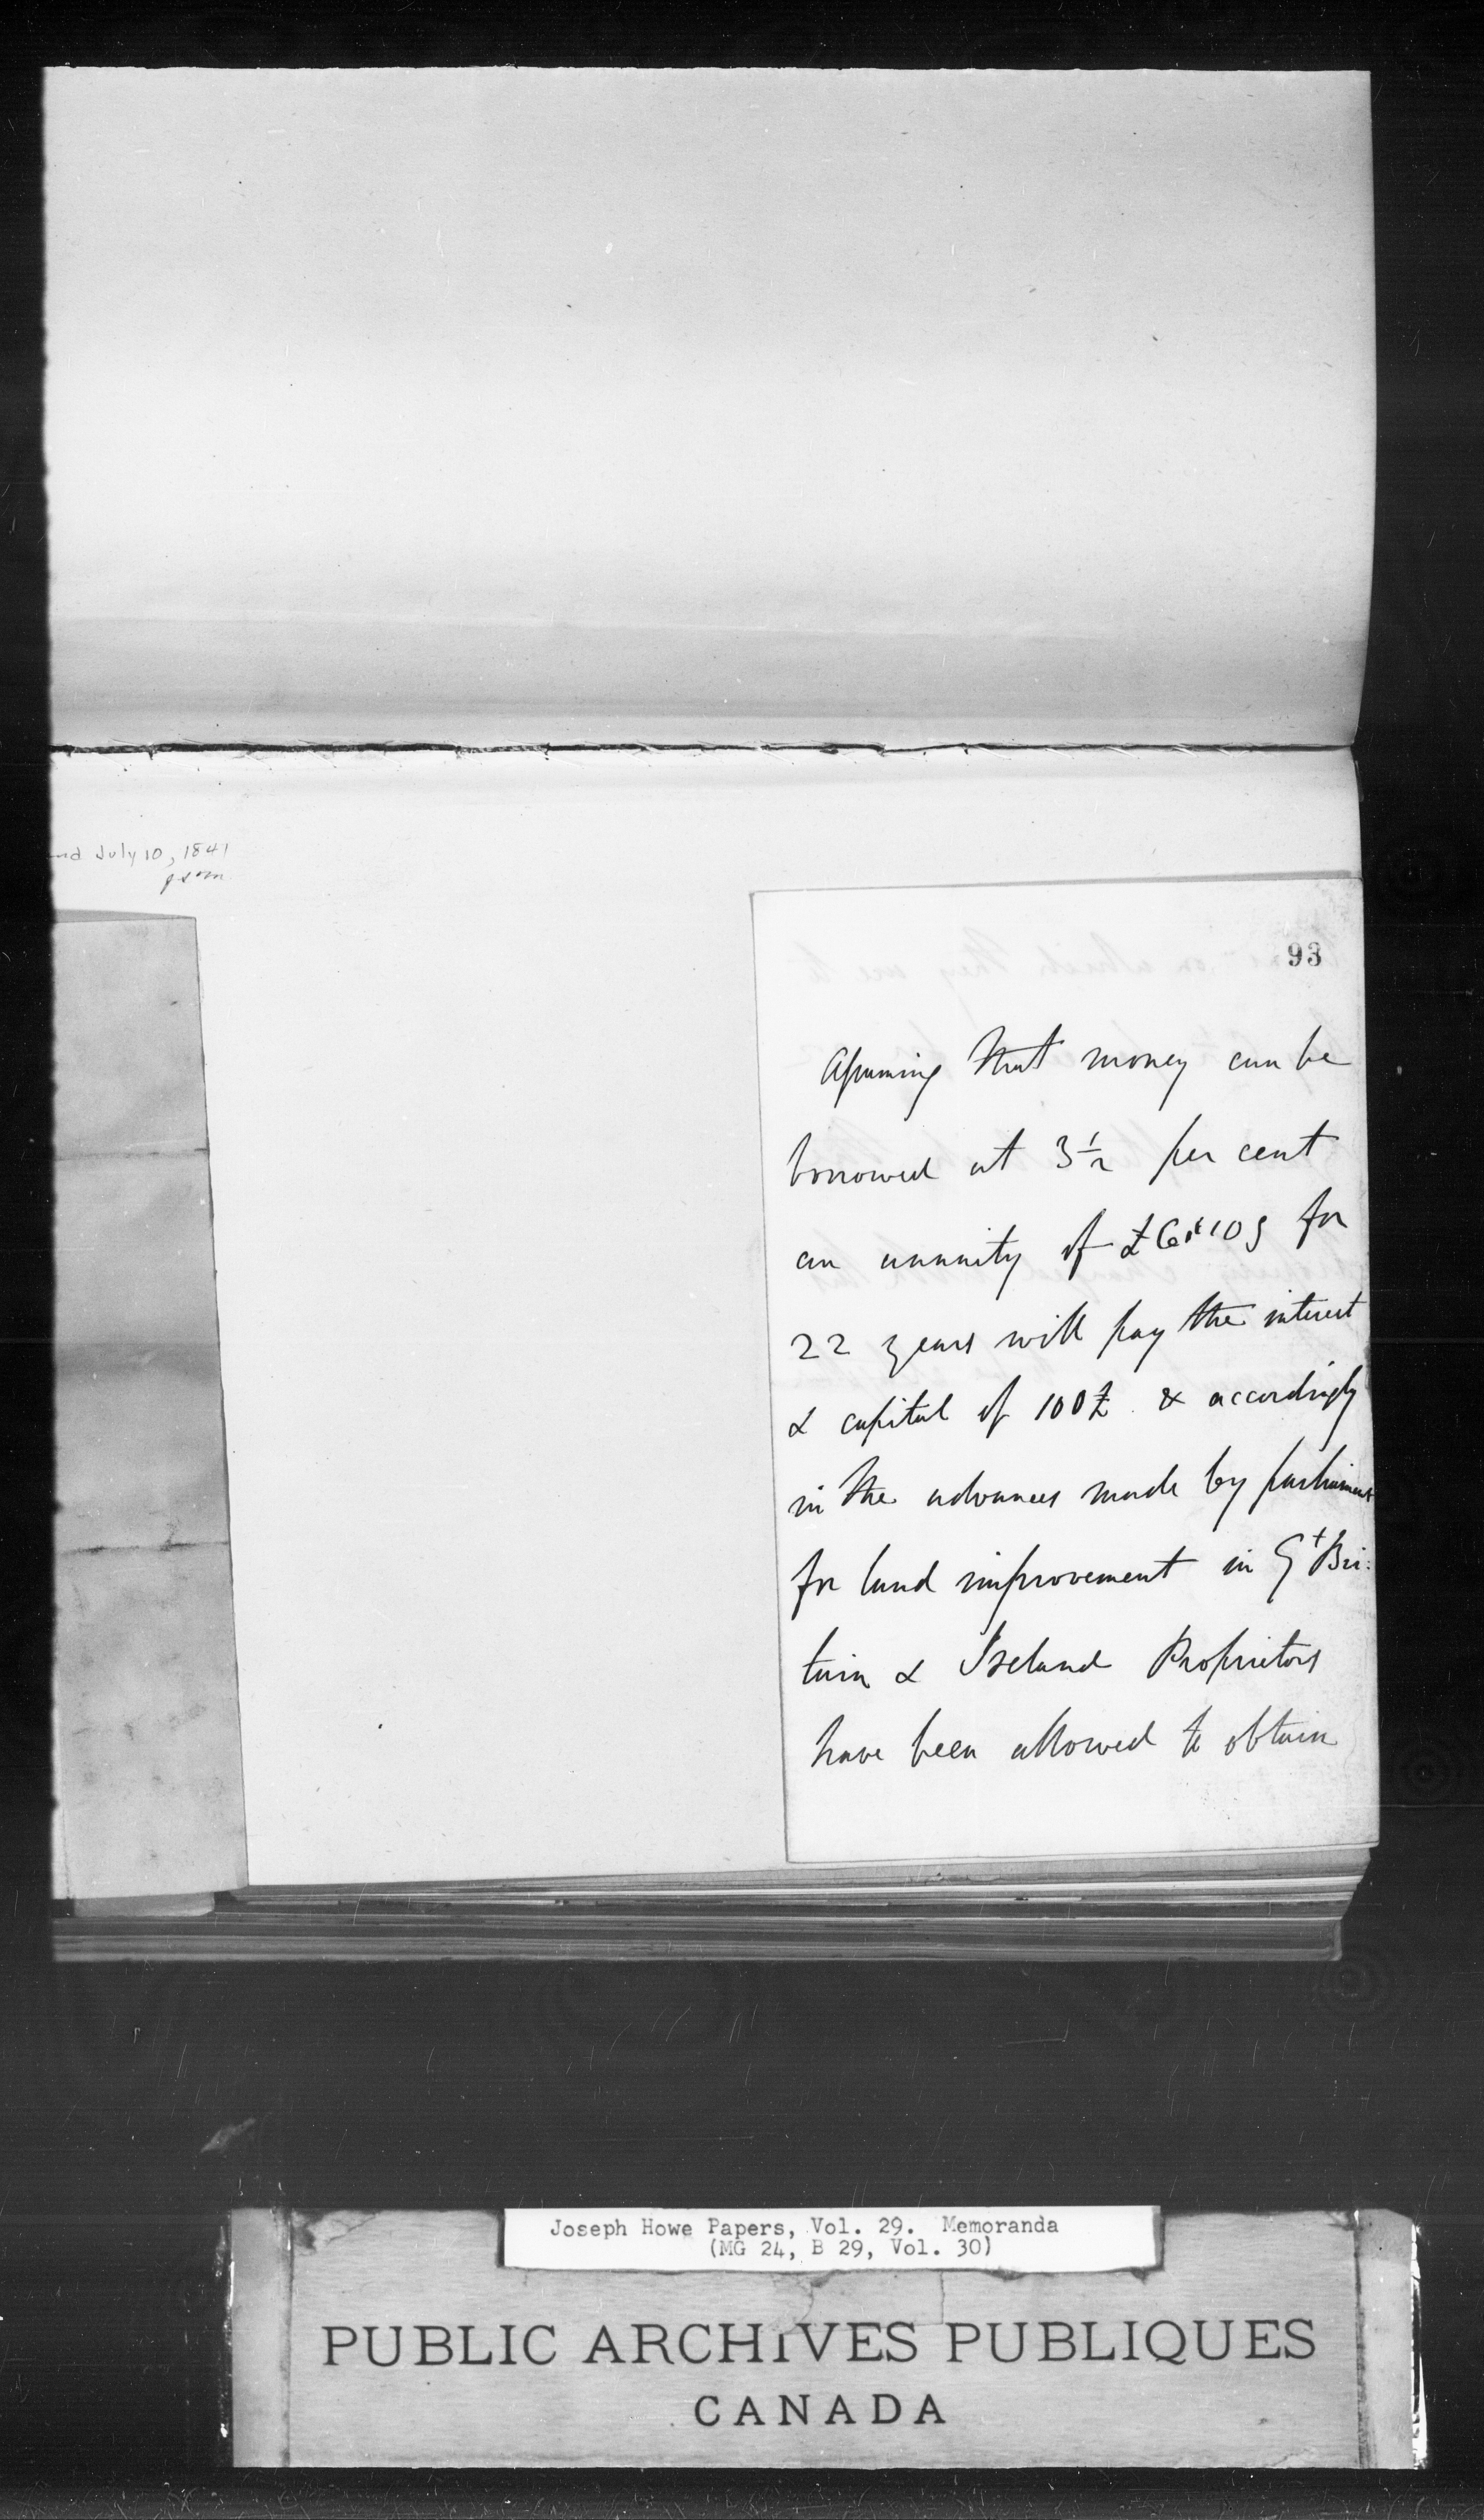 nd July 10, 1841
93
Assuming that money can be
borrowed at 3½ per cent
an annuity of £6 " 10s for
22 years will pay the interest
& capital of 100£ & accordingly
in the advances made by parliament
for land improvement in Gt Bri:
tain & Ireland Proprietors
have been allowed to obtain
Joseph Howe Papers, Vol. 29. Memoranda
(MG 24, B 29, Vol. 30)
PUBLIC ARCHIVES PUBLIQUES
CANADA